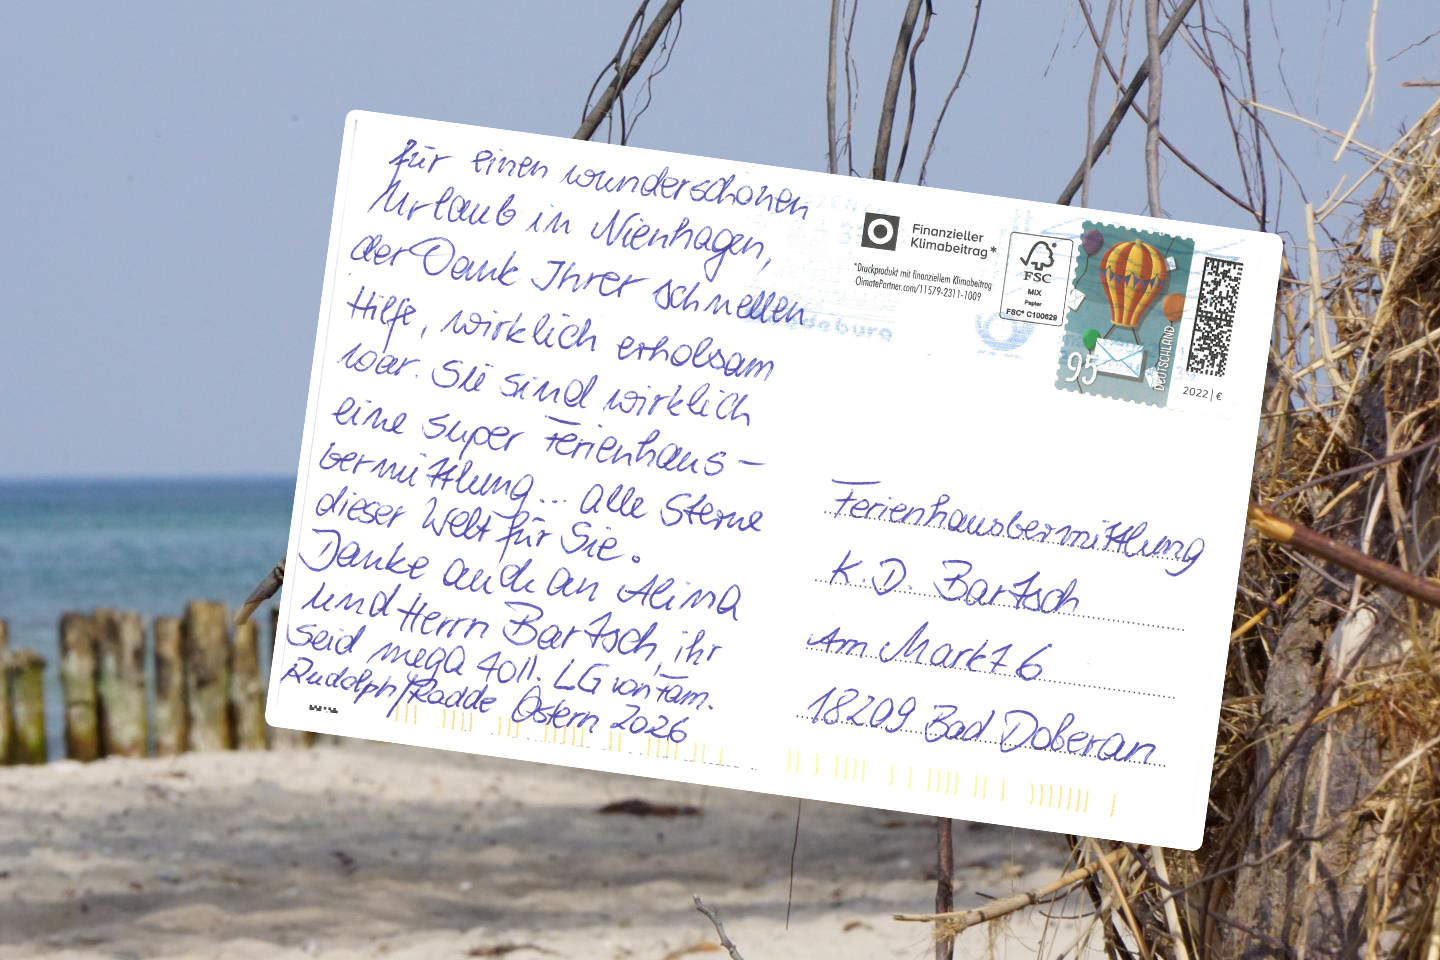 für einen wunderschönen
Urlaub in Nienhagen,
der Dank Ihrer schnellen
Hilfe, wirklich erholsam
war. Sie sind wirklich
eine super Ferienhaus-
vermittlung... alle Sterne
dieser Welt für Sie.
Danke auch an Alina
und Herrn Bartsch, ihr
seid mega toll. LG von Fam.
Rudolph/Radde Ostern 2026
Finanzieller
Klimabeitrag*
*Druckprodukt mit finanziellem Klimabeitrag
ClimatePartner.com/11579-2311-1009
FSC
MIX
Papier
FSC® C100629
95
DEUTSCHLAND
2022 | €
Ferienhausvermittlung
K.D. Bartsch
Am Markt 6
18209 Bad Doberan